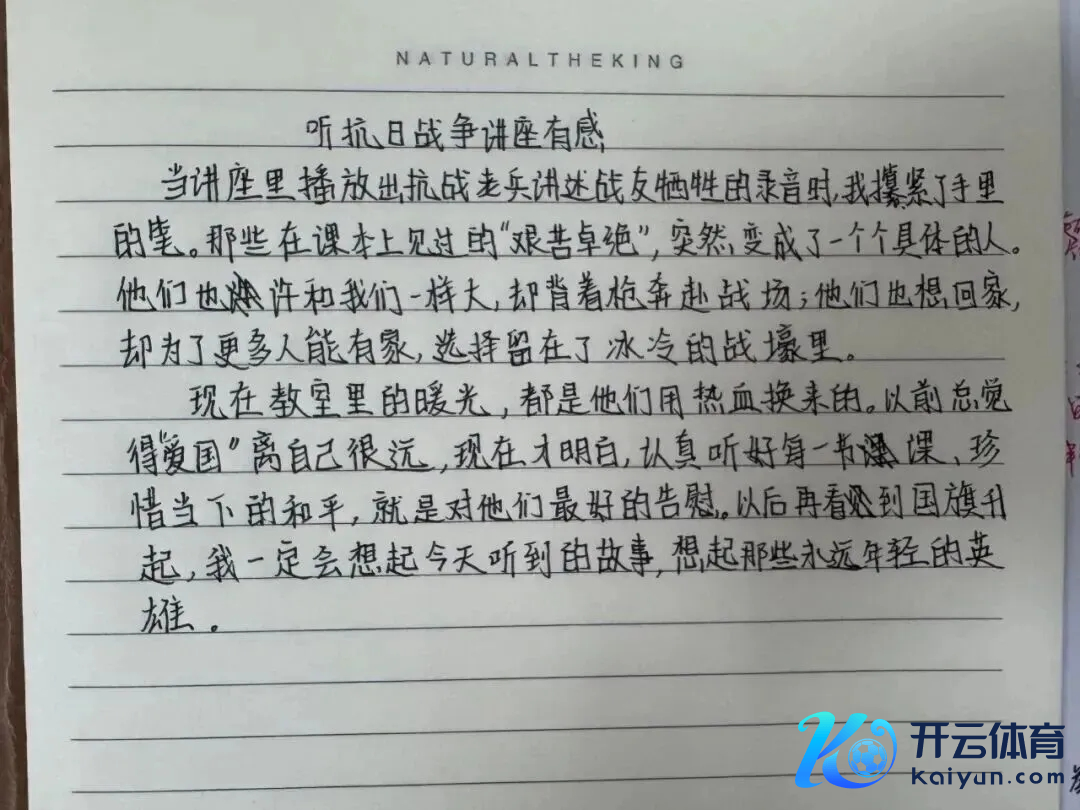 NATURALTHEKING
听抗日战争讲座有感
当讲座里播放出抗战老兵讲述战友牺牲的录音时,我攥紧了手里
的笔。那些在课本上见过的“艰苦卓绝”,突然变成了一个个具体的人。
他们也许和我们一样大,却背着枪奔赴战场;他们也想回家,
却为了更多人能有家,选择留在了冰冷的战壕里。
现在教室里的暖光,都是他们用热血换来的。以前总觉
得“爱国”离自己很远,现在才明白,认真听好每一节课、珍
惜当下的和平,就是对他们最好的告慰。以后再看到国旗升
起,我一定会想起今天听到的故事,想起那些永远年轻的英
雄。
开云体育
kaiyun.com